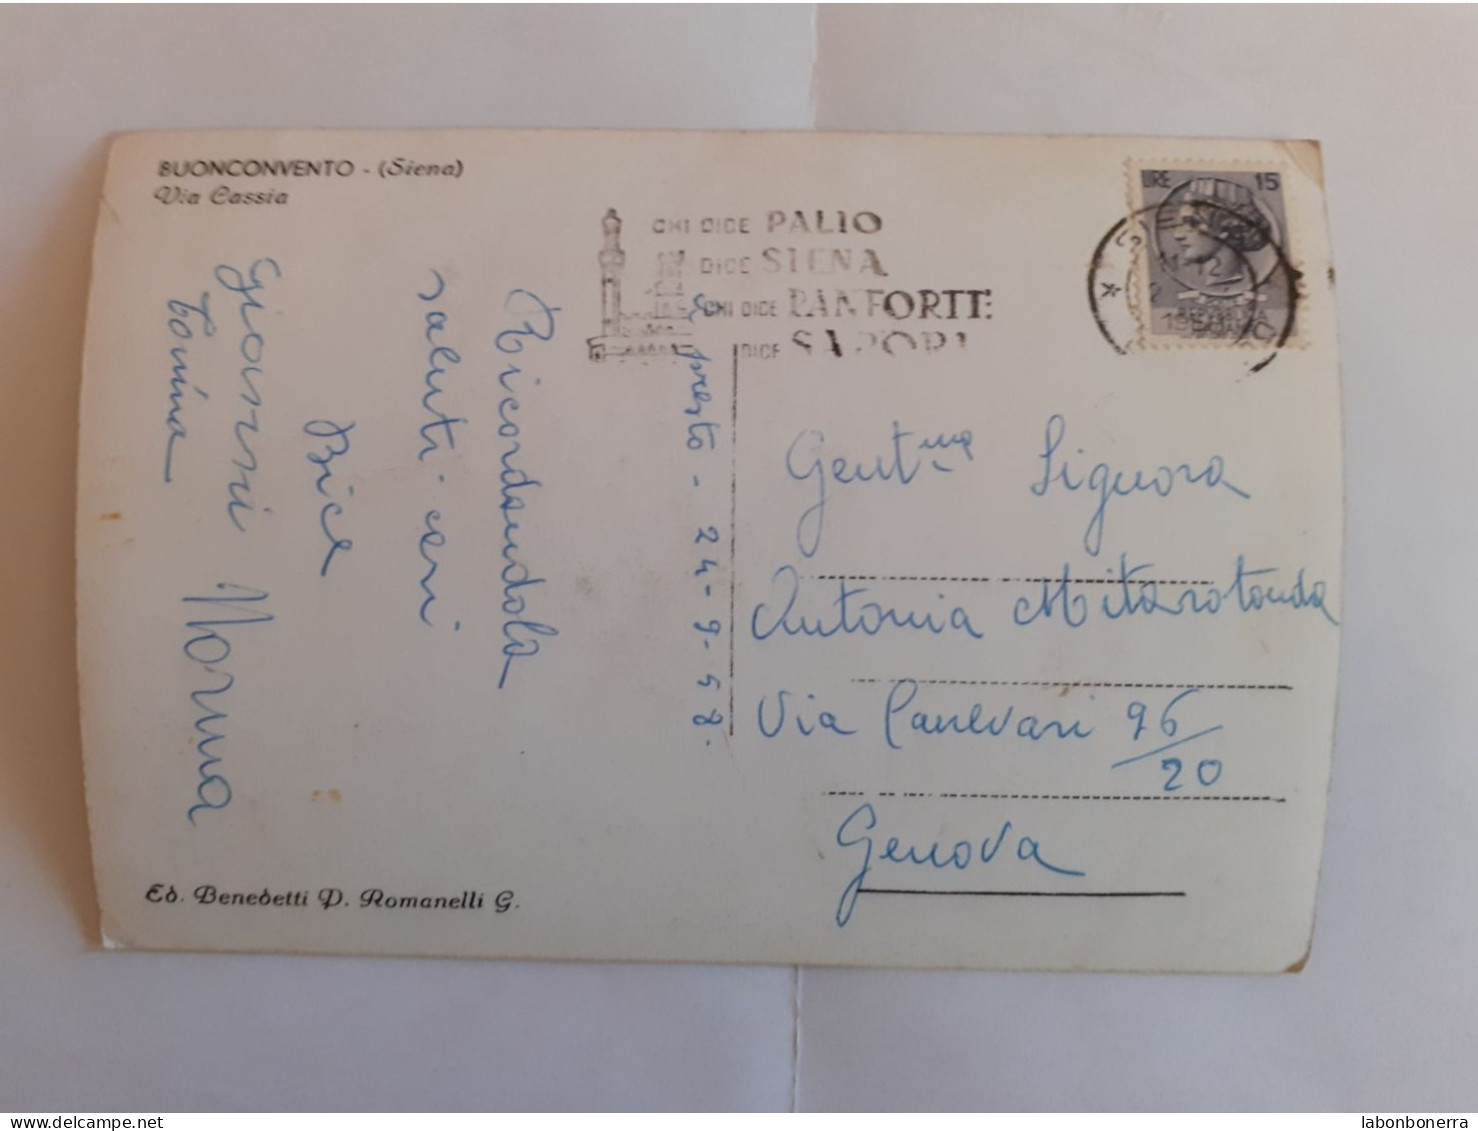 BUONCONVENTO - (Siena)
Via Cassia
CHI DICE PALIO
DICE SIENA
CHI DICE PANFORTE
DICE SAPORI
LIRE 15
11-12
1958
REPUBBLICA
presto - 24-9-58.
Ricordandola
saluti cari
Bice
Gianni Norma
Tonina
Gent.ma Signora
Antonia Mitarotonda
Via Canevari 96/20
Genova
Ed. Benedetti P. Romanelli G.
labonbonerra